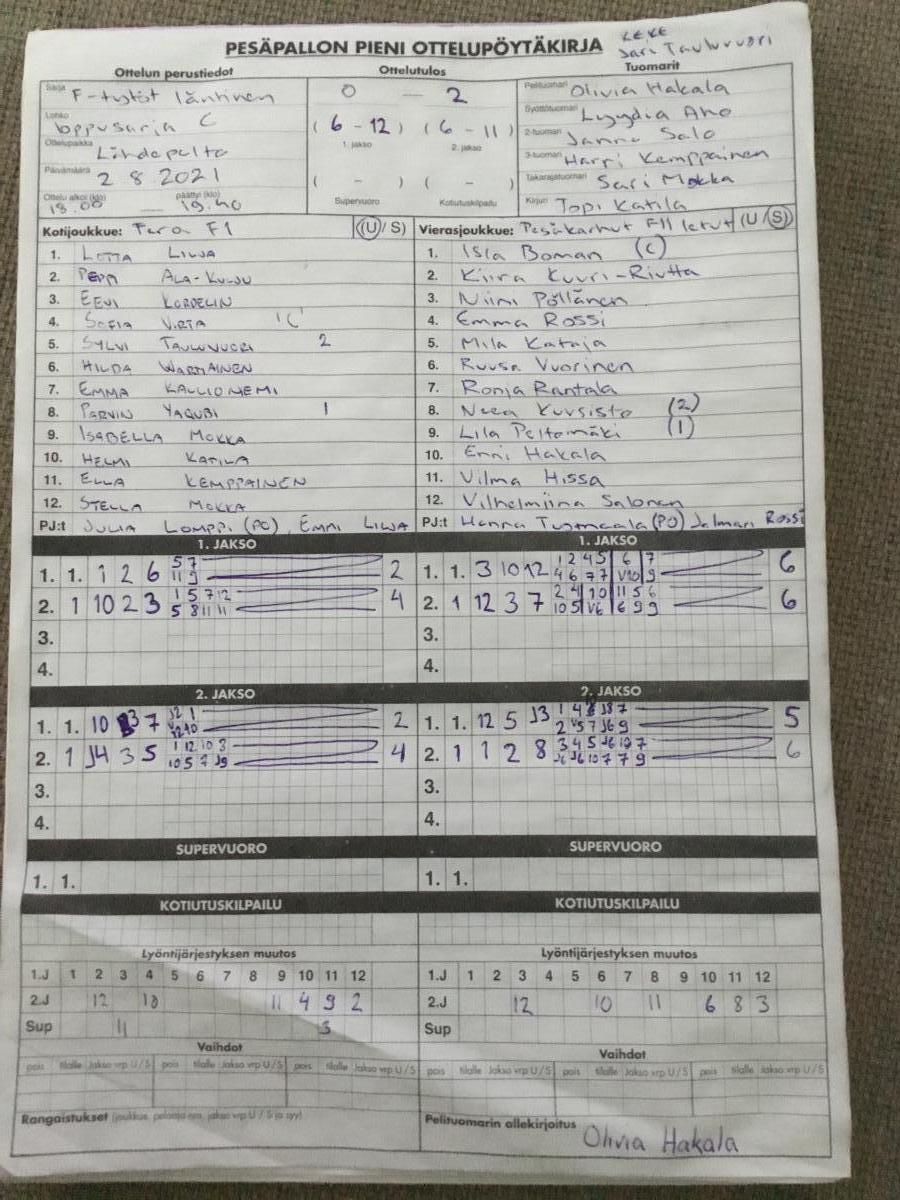 PESÄPALLON PIENI OTTELUPÖYTÄKIRJA
Ottelun perustiedot Ottelutulos Tuomarit
Sarja F-tytöt läntinen 0 — 2 Pelituomari Olivia Hakala
Lohko loppusarja C (6 - 12) (6 - 11) Syöttötuomari Lyydia Aho
1. jakso 2. jakso 2-tuomari Janne Salo
Ottelupaikka Lähdepelto 3-tuomari Harri Kemppainen
Päivämäärä 2 8 2021 ( - ) ( - ) Takarajatuomari Sari Mokka
Ottelu alkoi (klo) 18.00 päättyi (klo) 19.40 Supervuoro Kotiutuskilpailu Kirjuri Topi Katila
Kotijoukkue: Fera F1 (U / S) Vierasjoukkue: Pesäkarhut F11 letut (U / S)
1. LOTTA LILJA 1. Isla Boman (C)
2. PEPA ALA-KULJU 2. Kiira Kuuri-Riutta
3. EEVI KORDELIN 3. Niini Pöllänen
4. SOFIA VIRTA 'C' 4. Emma Rossi
5. SYLVI TAULUVUORI 2 5. Mila Kataja
6. HILDA WARTIAINEN 6. Ruusa Vuorinen
7. EMMA KALLIONIEMI 7. Ronja Rantala
8. PARVIN YAQUBI 1 8. Neea Kuusisto (2)
9. ISABELLA MOKKA 9. Lila Peltomäki (1)
10. HELMI KATILA 10. Enni Hakala
11. ELLA KEMPPAINEN 11. Vilma Hissa
12. STELLA MOKKA 12. Vilhelmiina Salonen
PJ:t JULIA LOMPPI (PO), EMMI LILJA PJ:t Henna (PO) Jalmari Rossi
1. JAKSO 1. JAKSO
1. 1. 1 2 6 5 7 2 1. 1. 3 10 12 1 2 4 5 6 7 6
11 9 4 6 7 7 V10 9
2. 1 10 2 3 1 5 7 12 4 2. 1 12 3 7 2 4 10 11 5 6 6
5 8 11 11 10 5 V6 6 9 9
3. 3.
4. 4.
2. JAKSO 2. JAKSO
1. 1. 10 3 7 J2 1 2 1. 1. 12 5 J3 5
2. 1 J4 3 5 1 12 10 3 4 2. 1 1 2 8 3 4 5 J6 10 7 6
10 5 7 J9 J6 J6 10 7 7 9
3. 3.
4. 4.
SUPERVUORO SUPERVUORO
1. 1. 1. 1.
KOTIUTUSKILPAILU KOTIUTUSKILPAILU
Lyöntijärjestyksen muutos Lyöntijärjestyksen muutos
1.J 1 2 3 4 5 6 7 8 9 10 11 12 1.J 1 2 3 4 5 6 7 8 9 10 11 12
2.J 12 10 11 4 9 2 2.J 12 10 11 6 8 3
Sup 11 3 Sup
Vaihdot Vaihdot
pois tilalle Jakso vrp U / S pois tilalle Jakso vrp U / S pois tilalle Jakso vrp U / S pois tilalle Jakso vrp U / S pois tilalle Jakso vrp U / S pois tilalle Jakso vrp U / S
Rangaistukset (joukkue, pelaaja nro, jakso vrp U / S ja syy) Pelituomarin allekirjoitus
Olivia Hakala